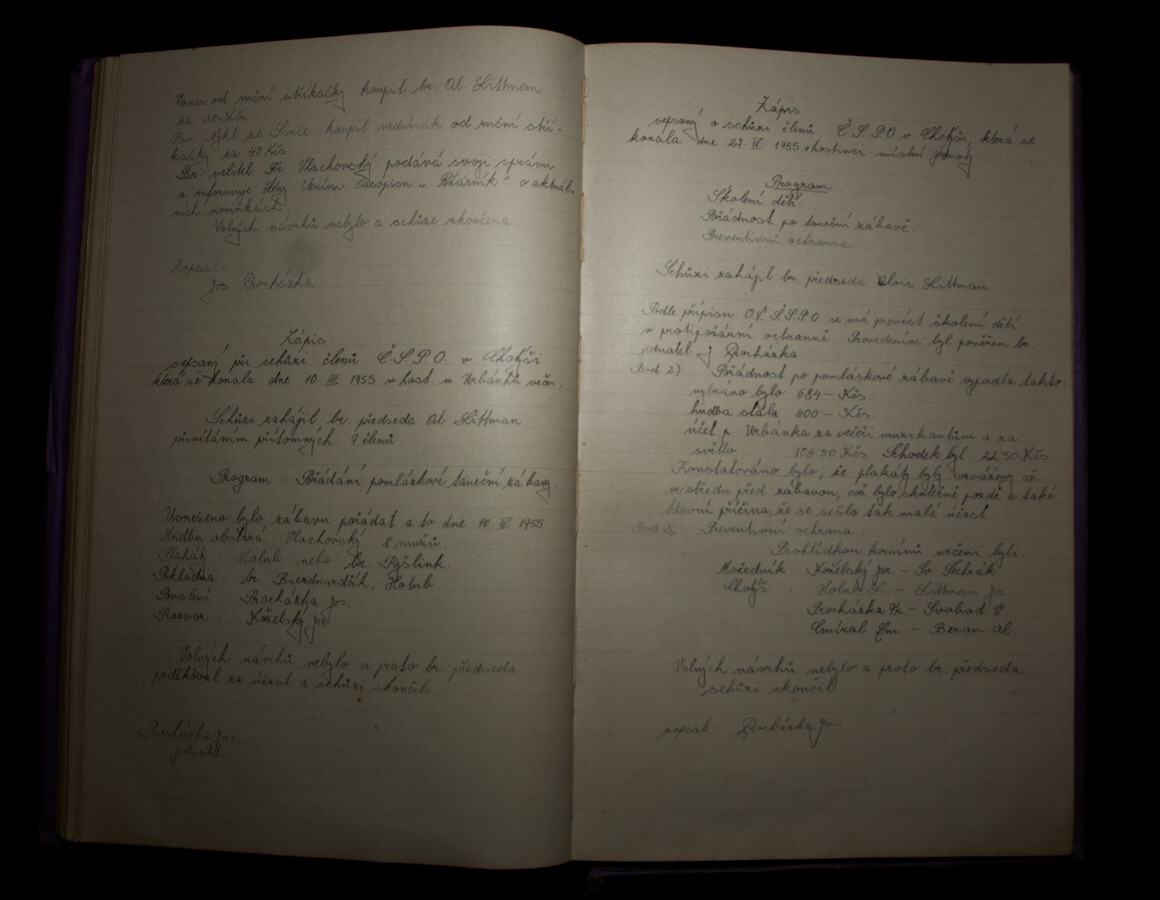 Vanu od ruční stříkačky koupil br. Al. Littman
za 30 Kčs.
Pan Tykl ze Linče koupil vzdušník od ruční stří-
kačky za 40 Kčs.
Br. velitel Fr. Vlachovský podává svoji správu
a informuje členy čtením časopisu „Požárník" o aktuál-
ních novinkách.
Volných návrhů nebylo a schůze skončena.
Zapsal:
Jos Procházka.
Zápis
sepsaný při schůzi členů Č.S.P.O. v
která se konala dne 10. III. 1955 v host. u Urbánků večer.
Schůzi zahájil br. předseda Al. Littman
přivítáním přítomných 9 členů
Program: Pořádání pomlázkové taneční zábavy.
Usnešeno bylo zábavu pořádat a to dne 10. IV. 1955
Hudbu obstará Vlachovský 8 mužů.
Plakáty: Holub nebo br. Ryšlink.
Pokladna: br. Holub
Povolení: Procházka Jos.
Rozvoz: Koželský jr.
Volných návrhů nebylo a proto br. předseda
poděkoval za účast a schůzi skončil.
Procházka Jos.
jednatel
Zápis
sepsaný o schůzi členů Č.S.P.O. v která se
konala dne 27. IV. 1955 v hostinci místní
Program
Školení dětí
Pořádnost po taneční zábavě.
Preventivní ochranna
Schůzi zahájil br. předseda Alois Littman
Podle přípisu O.V. Č.S.P.O. se má provést školení dětí
v protipožární ochranně. Provedením byl pověřen br.
jednatel J. Procházka.
Bod 2) Pořádnost po pomlázkové zábavě vypadla takto:
vybráno bylo 684 - Kčs
hudba stála 600 - Kčs.
účet p. Urbánka za večeři muzikantům a za
světlo 106 50 Kčs Schodek byl 22 50 Kčs.
Konstatováno bylo, že plakáty byly rozváženy až
ve středu před zábavou, což bylo skutečně pozdě a také
hlavní příčina, že se sešlo tak malá účast
Bod 3) Preventivní ochrana:
Prohlídkou komínů určeni byli
Močedník: Koželský jr - Sv. Šachrák
Holub L. - Littman jr
Procházka Fr. - Svobod V.
Cmíral Em - Beran Al
Volných návrhů nebylo a proto br. předseda
schůzi ukončil.
zapsal: Procházka Jo